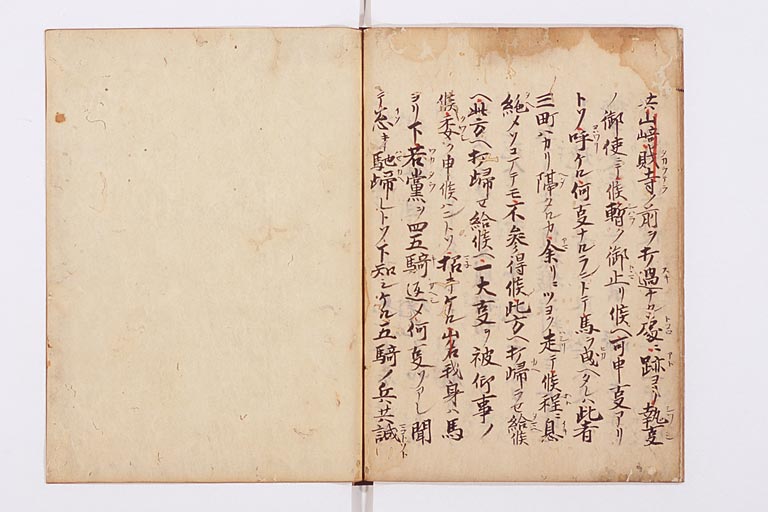 共山崎財寺ノ前ヲ打過ケル處ニ跡ヨリ執事
ノ御使ニテ候暫ク御止リ候ヘ可申事アリ
トソ呼ケル何事ナルラントテ馬ヲ Ctrl ヘタレハ此者
三町ハカリ隔タルカ余リニツヨク走テ候程ニ息
絶メソコマテモ不参得候此方ヘ打帰ラセ給候
ヘ此方ヘ打帰セ給候ヘ一大事ヲ被仰事ノ
候委ク申候ハントソ招キケル山名我身ハ馬
ヨリ下若黨ヲ四五騎返メ何事ソアレ聞
テ急キ馳帰レトソ下知シケル五騎ノ兵共誠